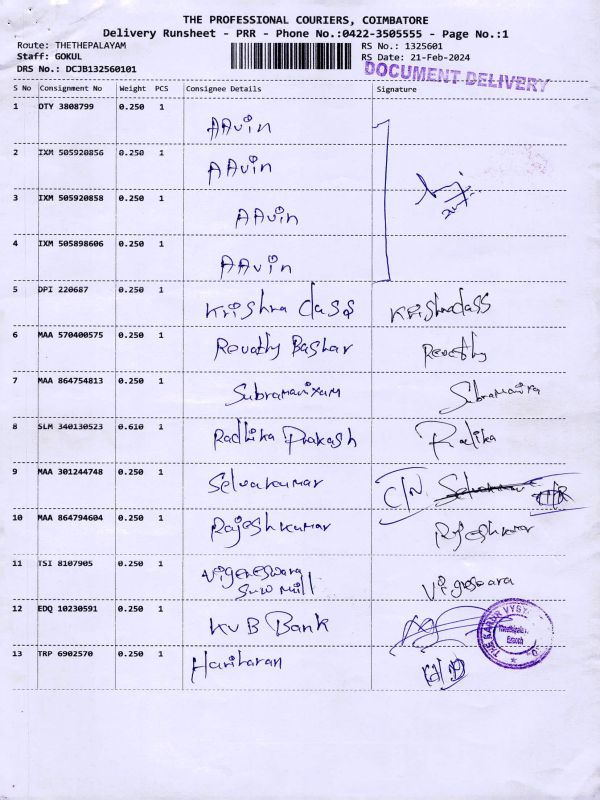 THE PROFESSIONAL COURIERS, COIMBATORE
Delivery Runsheet - PRR - Phone No.:0422-3505555 - Page No.:1
Route: THETHEPALAYAM RS No.: 1325601
Staff: GOKUL RS Date: 21-Feb-2024
DRS No.: DCJB132560101 DOCUMENT DELIVERY
S No Consignment No Weight PCS Consignee Details Signature
1 DTY 3808799 0.250 1 AAvin
2 IXM 505920856 0.250 1 AAvin
3 IXM 505920858 0.250 1 AAvin
4 IXM 505898606 0.250 1 AAvin
5 DPI 220687 0.250 1 Krishna dass Krishnadass
6 MAA 570400575 0.250 1 Revathy Bashar Revathy
7 MAA 864754813 0.250 1 Subramaniyam Subramaniya
8 SLM 340130523 0.610 1 Radhika Prakash Radika
9 MAA 301244748 0.250 1 Selvakumar C/N
10 MAA 864794604 0.250 1 Rajeshkumar Rajeshkumar
11 TSI 8107905 0.250 1 Vigneswara Vigneswara
Saw mill
12 EDQ 10230591 0.250 1 KVB Bank THE KARUR VYSYA
13 TRP 6902570 0.250 1 Hariharan